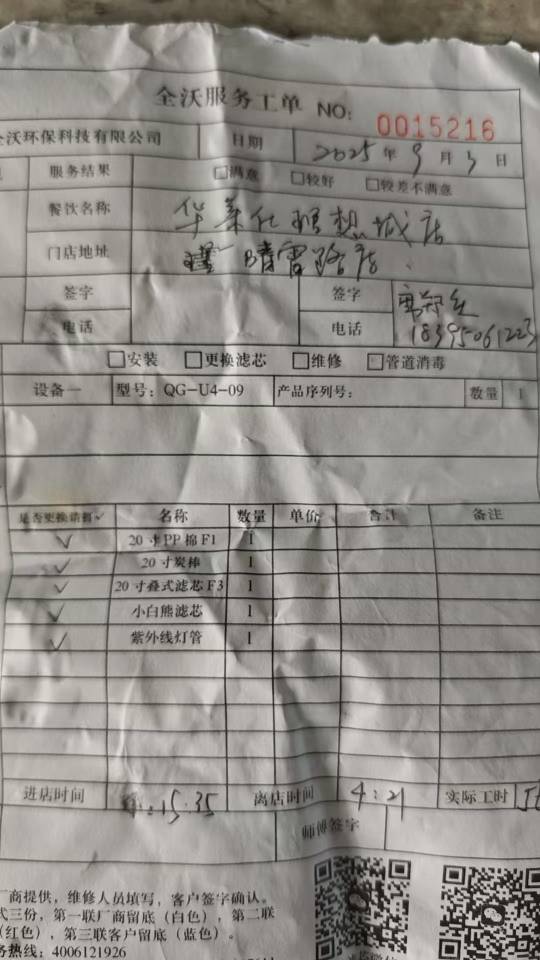 全沃服务工单 NO: 0015216
全沃环保科技有限公司 日期 2025年9月3日
服务结果 □满意 □较好 □较差不满意
餐饮名称 华莱仕理想城店
门店地址 晴雪路店
签字 签字
电话 电话 18395061223
□安装 □更换滤芯 □维修 □管道消毒
设备一 型号:QG-U4-09 产品序列号: 数量 1
是否更换请打✓ 名称 数量 单价 合计 备注
✓ 20寸PP棉F1 1
✓ 20寸炭棒 1
✓ 20寸叠式滤芯F3 1
✓ 小白熊滤芯 1
✓ 紫外线灯管 1
进店时间 15:35 离店时间 4:21 实际工时
师傅签字
厂商提供,维修人员填写,客户签字确认。
式三份,第一联厂商留底(白色),第二联
(红色),第三联客户留底(蓝色)。
务热线:4006121926